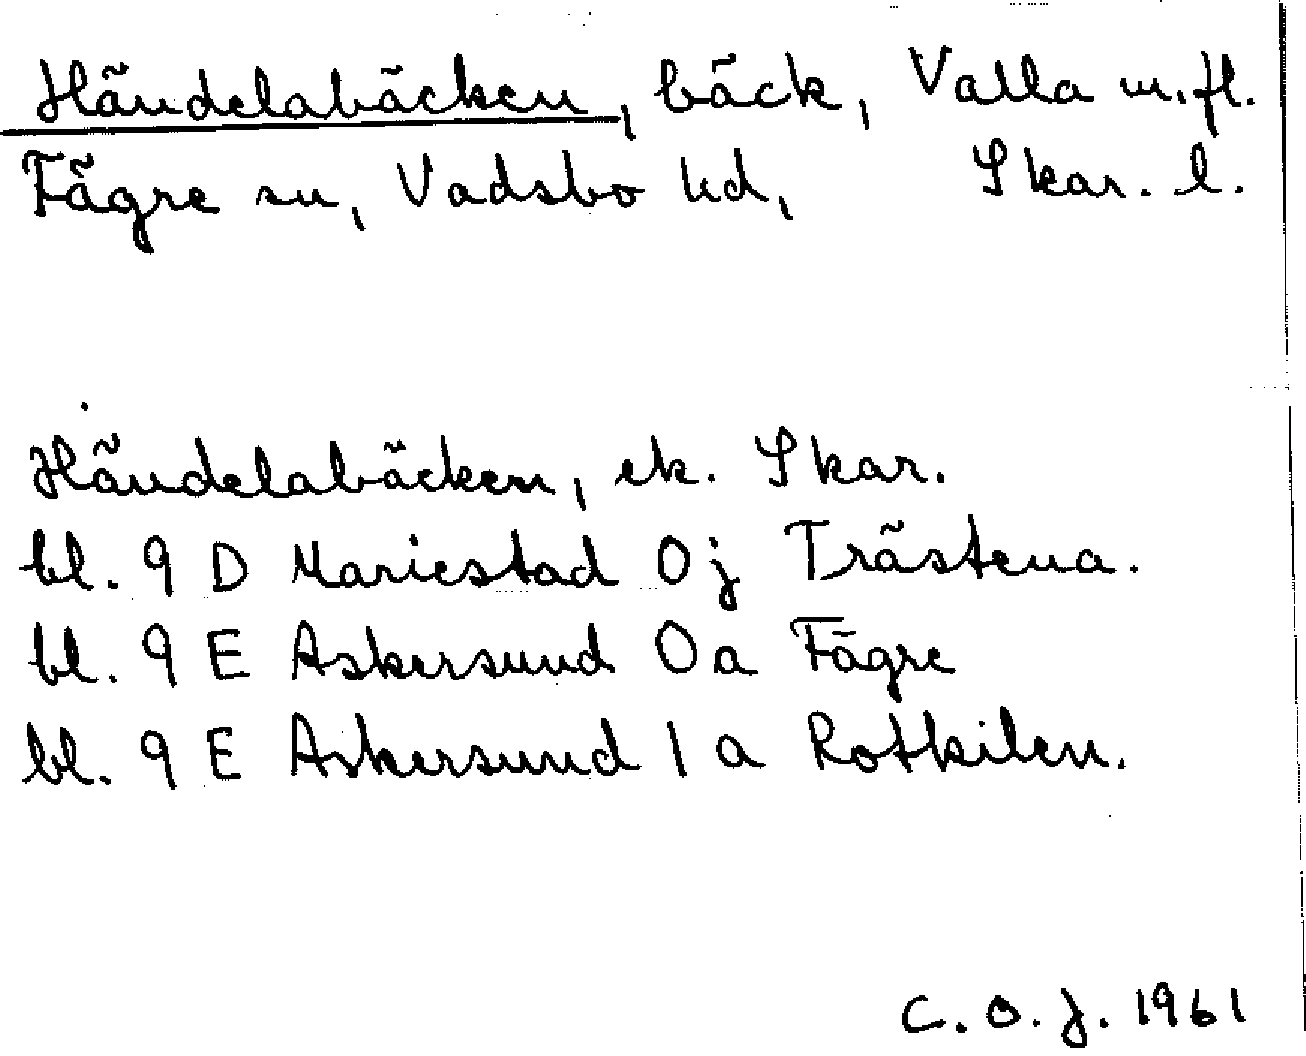 Händelabäcken, bäck, Valla m.fl.
Fägre sn, Vadsbo hd, Skar. l.
Händelabäcken, ek. Skar.
bl. 9 D Mariestad 0j Trästena.
bl. 9 E Askersund 0a Fägre
bl. 9 E Askersund 1a Rotkilen.
C.O.J. 1961